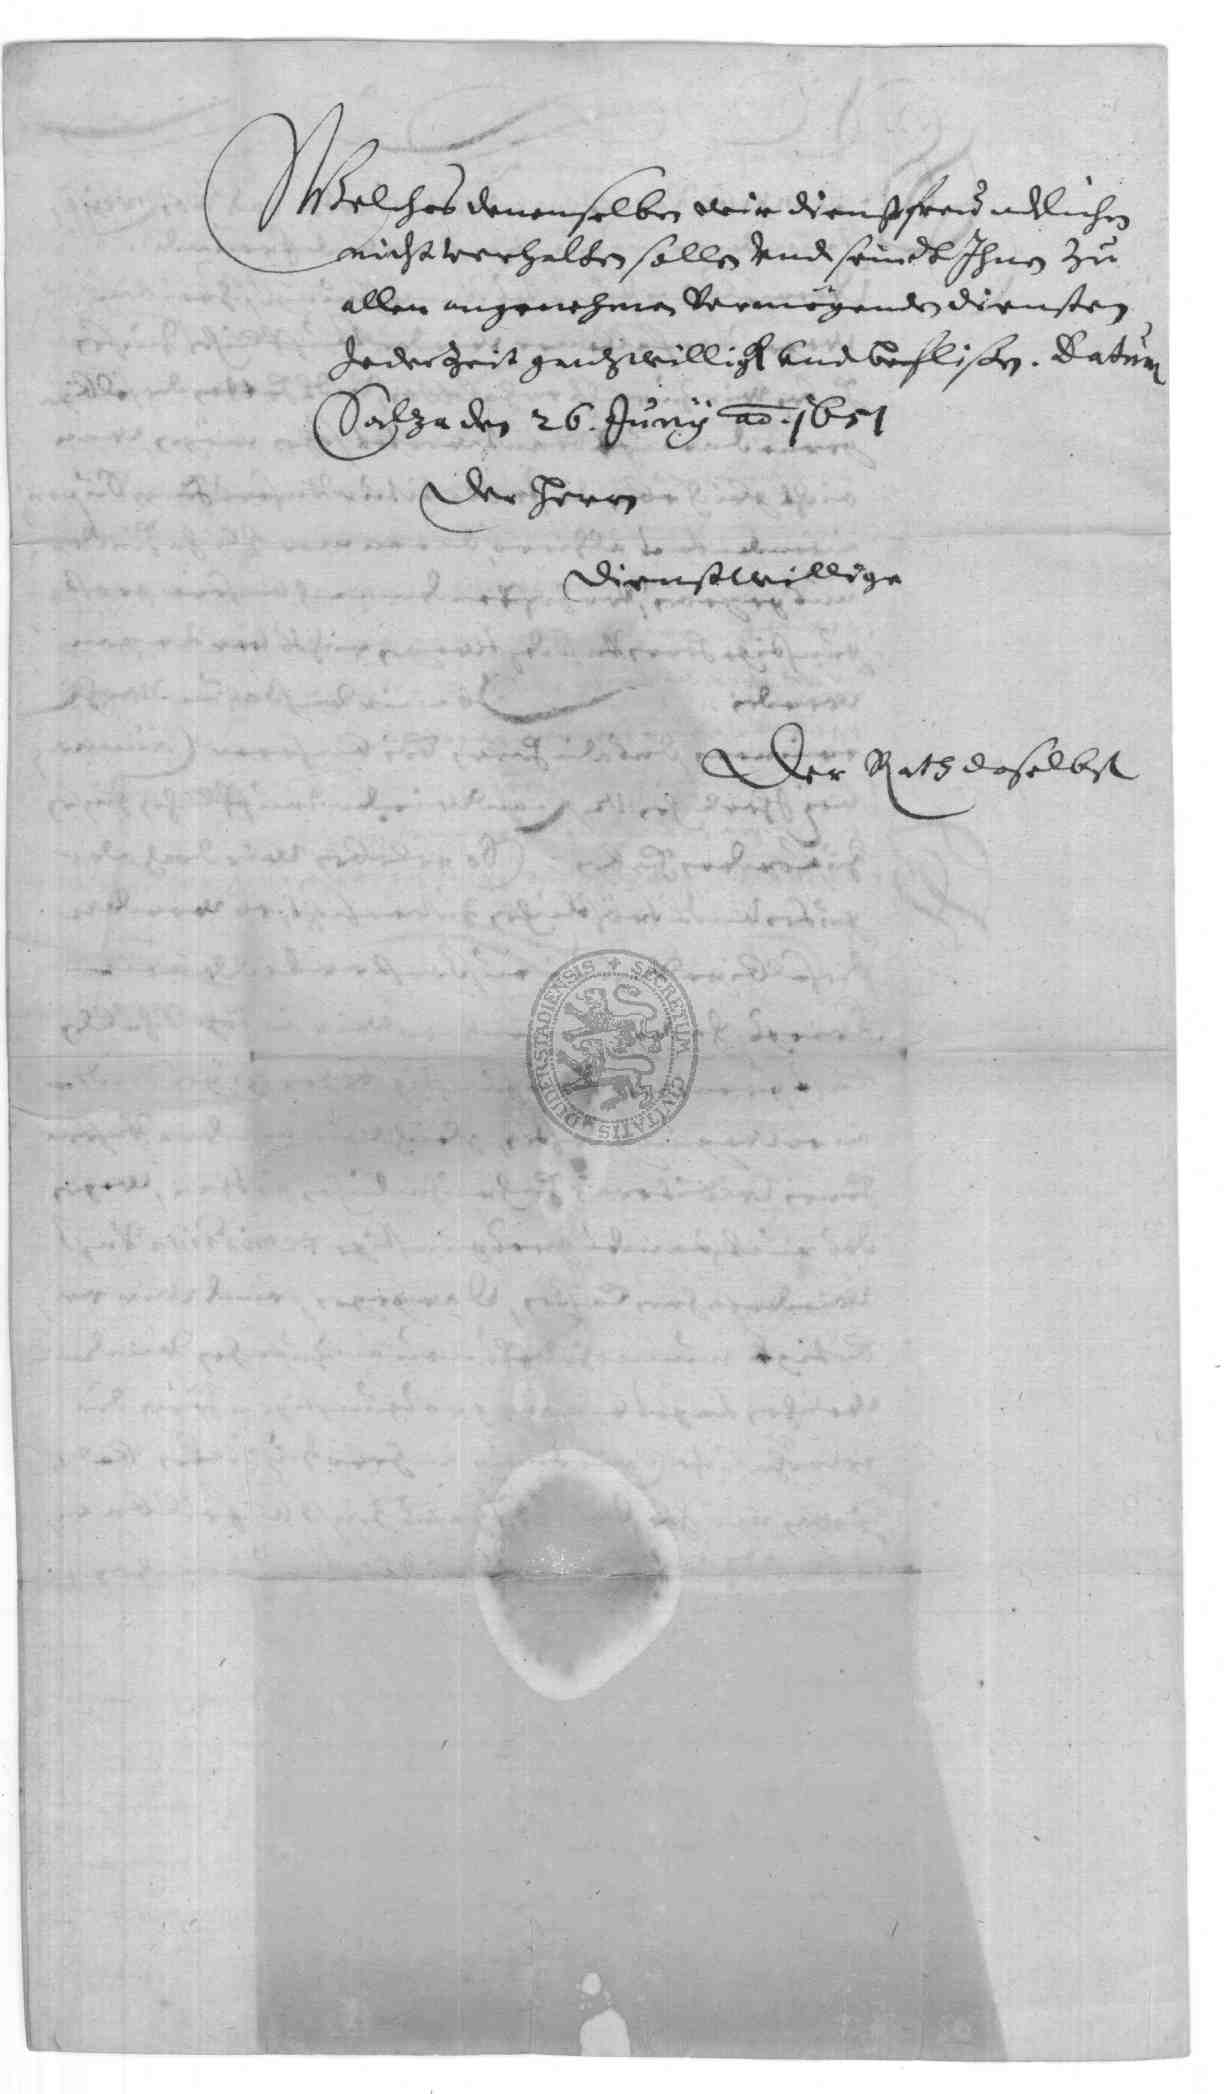 Welches denenselben wir dienstfreundtlichen
nicht verhalten sollen Undt seindt Ihnen zu
allen angenehmen Vermögenden diensten
Jederzeit gantz willigk und beflissen. Datum
Saltza den 26. Junÿ aõ. 1651
Der Herrn
Dienstwillige
Der Rath daselbst
SECRETUM CIVITATIS DUDERSTADIENSIS